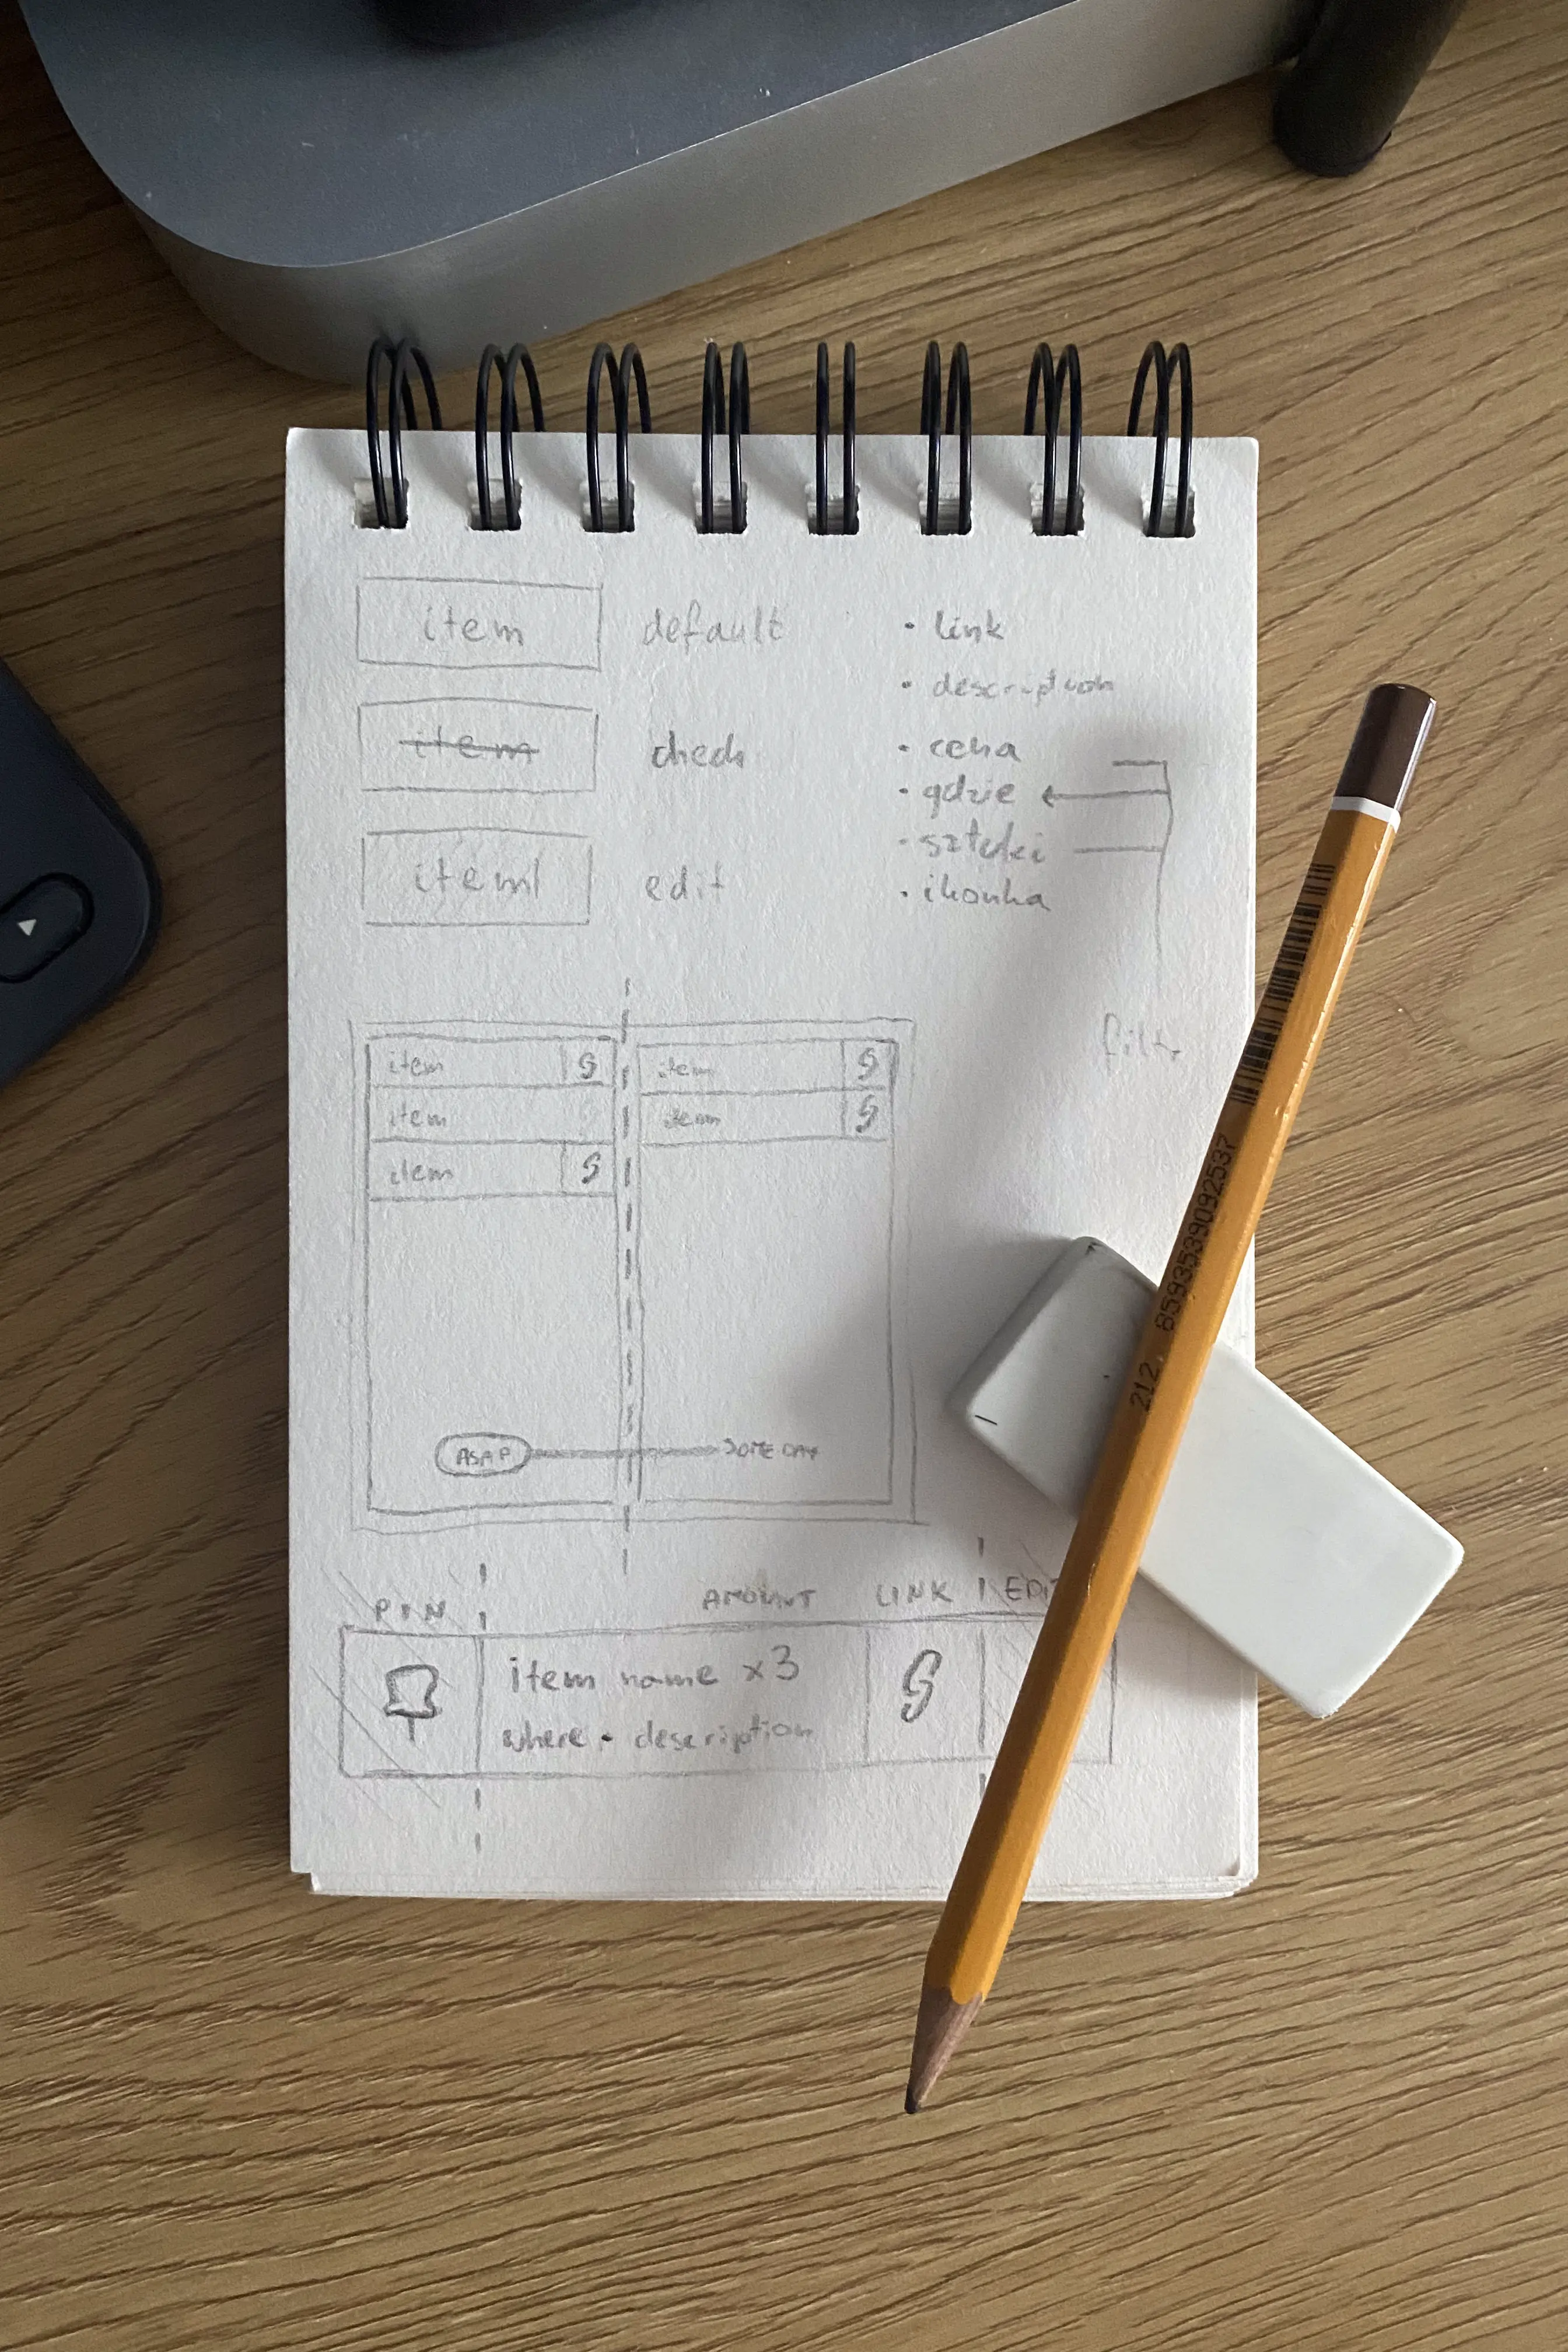 item default
item check
item edit
· link
· description
· cena
· gdzie
· sztuki
· ikonka
filtr
item
item
item
item
item
ASAP SOME DAY
PIN AMOUNT LINK EDIT
item name x3
where · description
212 8593539092537